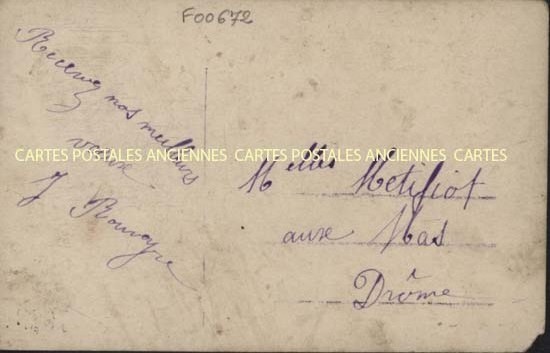 F00672
Recevez nos meilleurs
voeux
J Rouveyre
CARTES POSTALES ANCIENNES CARTES POSTALES ANCIENNES CARTES
Melles Metifiot
aux Mas
Drôme